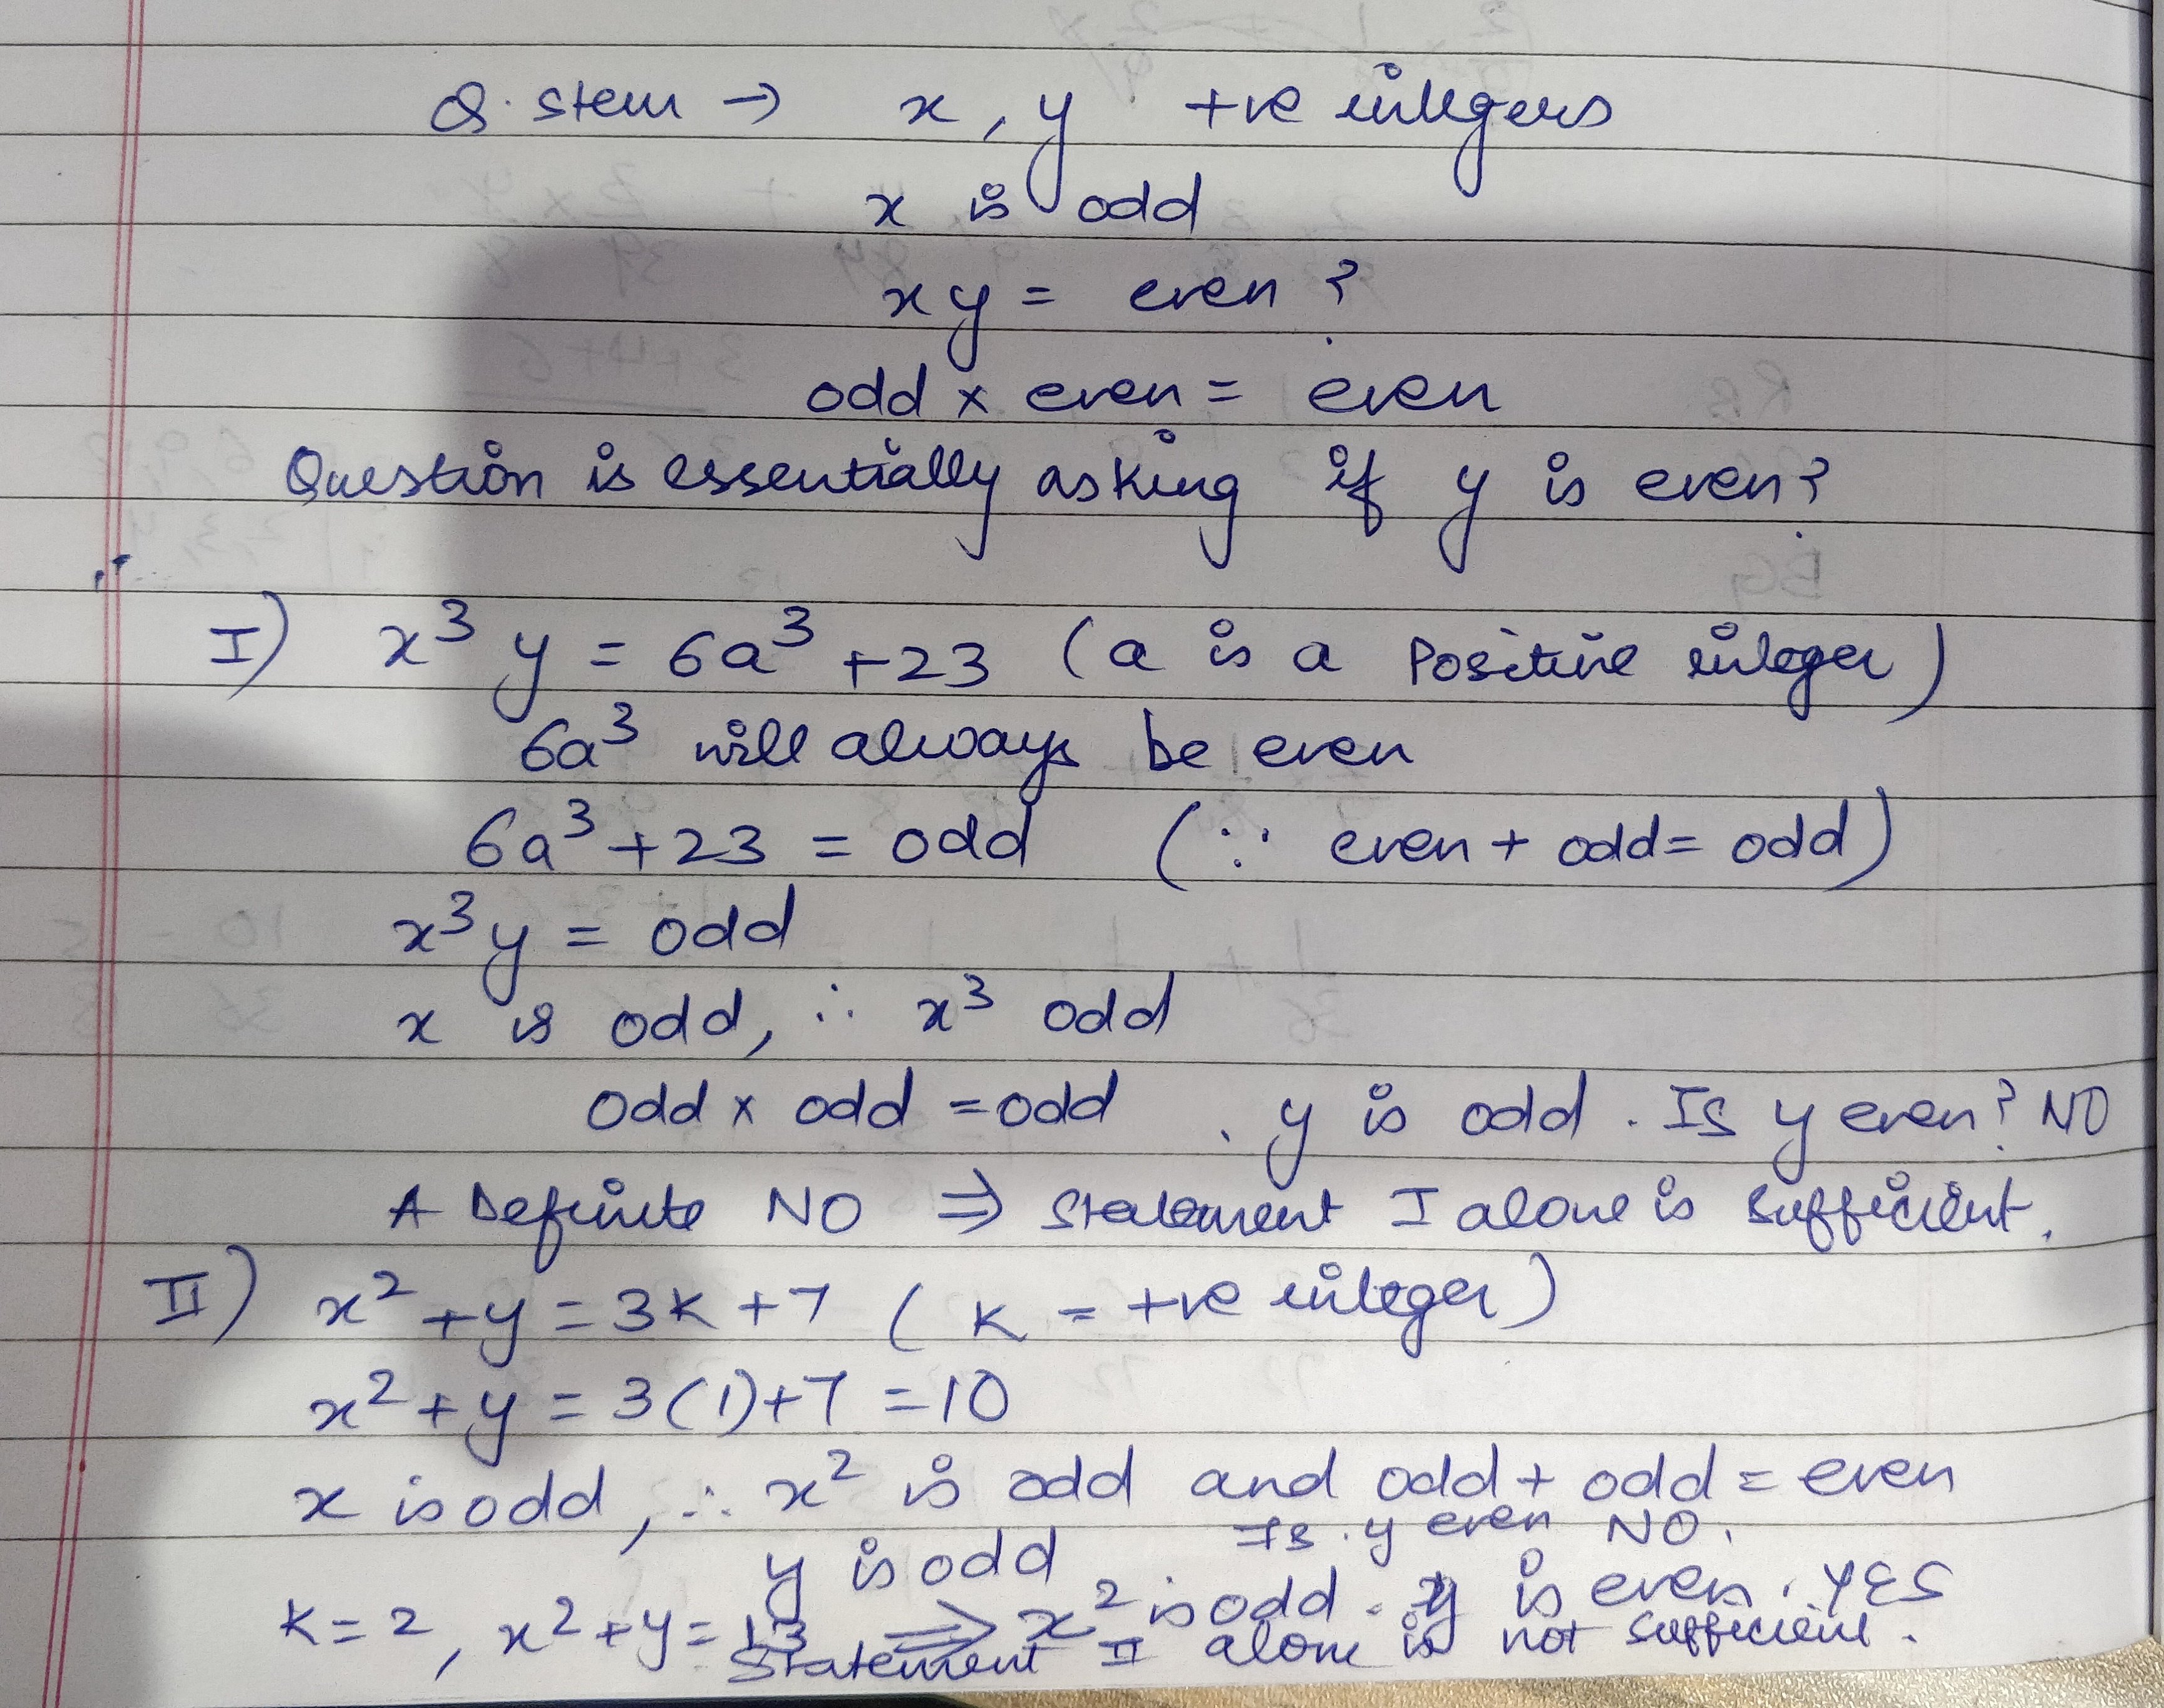 Q. stem → x, y +ve integers
x is odd
xy = even?
odd × even = even
Question is essentially asking if y is even?
I) x³y = 6a³ + 23 (a is a Positive integer)
6a³ will always be even
6a³ + 23 = odd (∵ even + odd = odd)
x³y = odd
x is odd, ∴ x³ odd
odd × odd = odd . y is odd. Is y even? NO
A Definite NO ⇒ Statement I alone is sufficient.
II) x² + y = 3K + 7 (K = +ve integer)
x² + y = 3(1) + 7 = 10
x is odd, ∴ x² is odd and odd + odd = even
y is odd Is y even NO.
K = 2, x² + y = 13 ⇒ x² is odd. y is even. YES
Statement II alone is not sufficient.